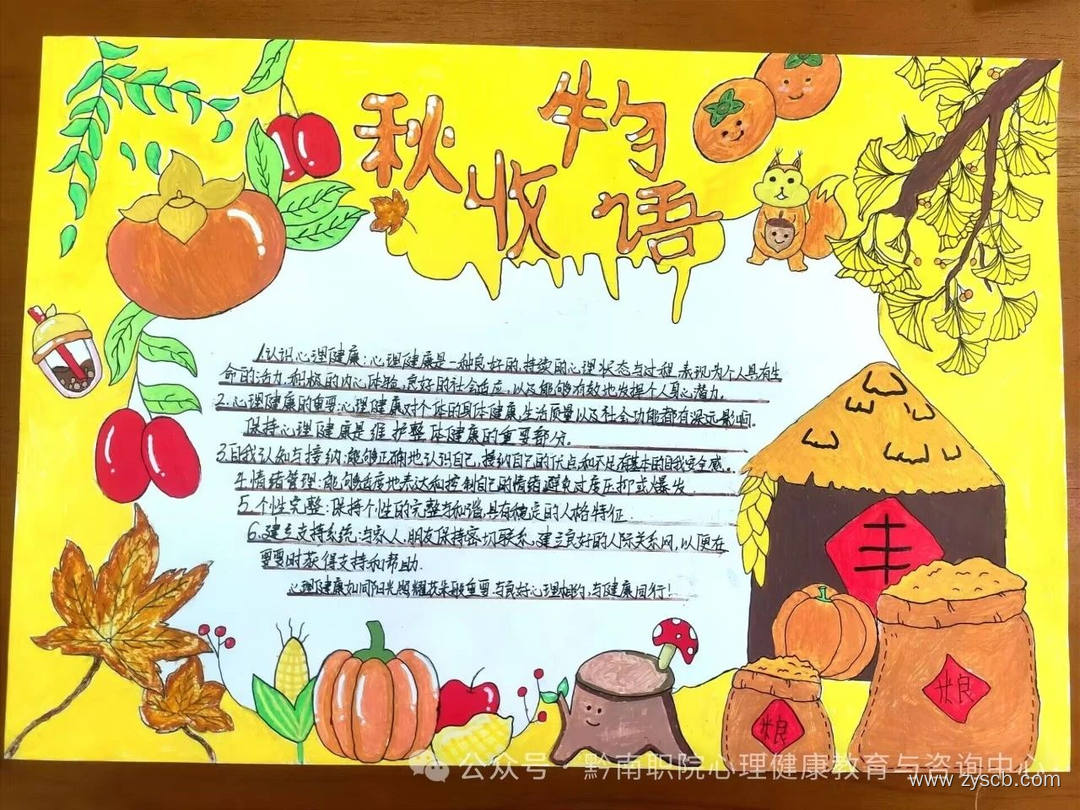 秋收物语
1.认识心理健康:心理健康是一种良好的,持续的心理状态与过程,表现为个人具有生
命的活力,积极的内心体验,良好的社会适应,以及能够有效地发挥个人身心潜力。
2.心理健康的重要:心理健康对个体的身体健康,生活质量以及社会功能都有深远影响。
保持心理健康是维护整体健康的重要部分。
3.自我认知与接纳:能够正确地认识自己,接纳自己的优点和不足有基本的自我安全感。
4.情绪管理:能够适度地表达和控制自己的情绪,避免过度压抑或爆发
5.个性完整:保持个性的完整与和谐,具有稳定的人格特征.
6.建立支持系统:与家人,朋友保持密切联系,建立良好的人际关系网,以便在
需要时获得支持和帮助.
心理健康如同阳光照耀花朵般重要,与良好心理相约,与健康同行!
丰
粮
粮
公众号·黔南职院心理健康教育与咨询中心
www.zyscb.com